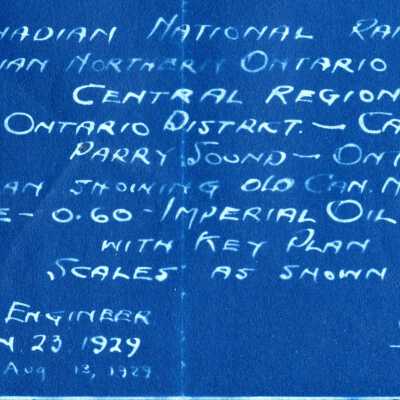 NADIAN NATIONAL RAI
IAN NORTHERN ONTARIO
CENTRAL REGION
ONTARIO DISTRKT. — CA
PARRY SOUND — ONT
AN SHOINING OLD CAN. N
E - 0.60 - IMPERIAL OIL
WITH KEY PLAN
SCALES AS SHOWN
ENGINEER
N. 23 1929
AUG 13, 1929